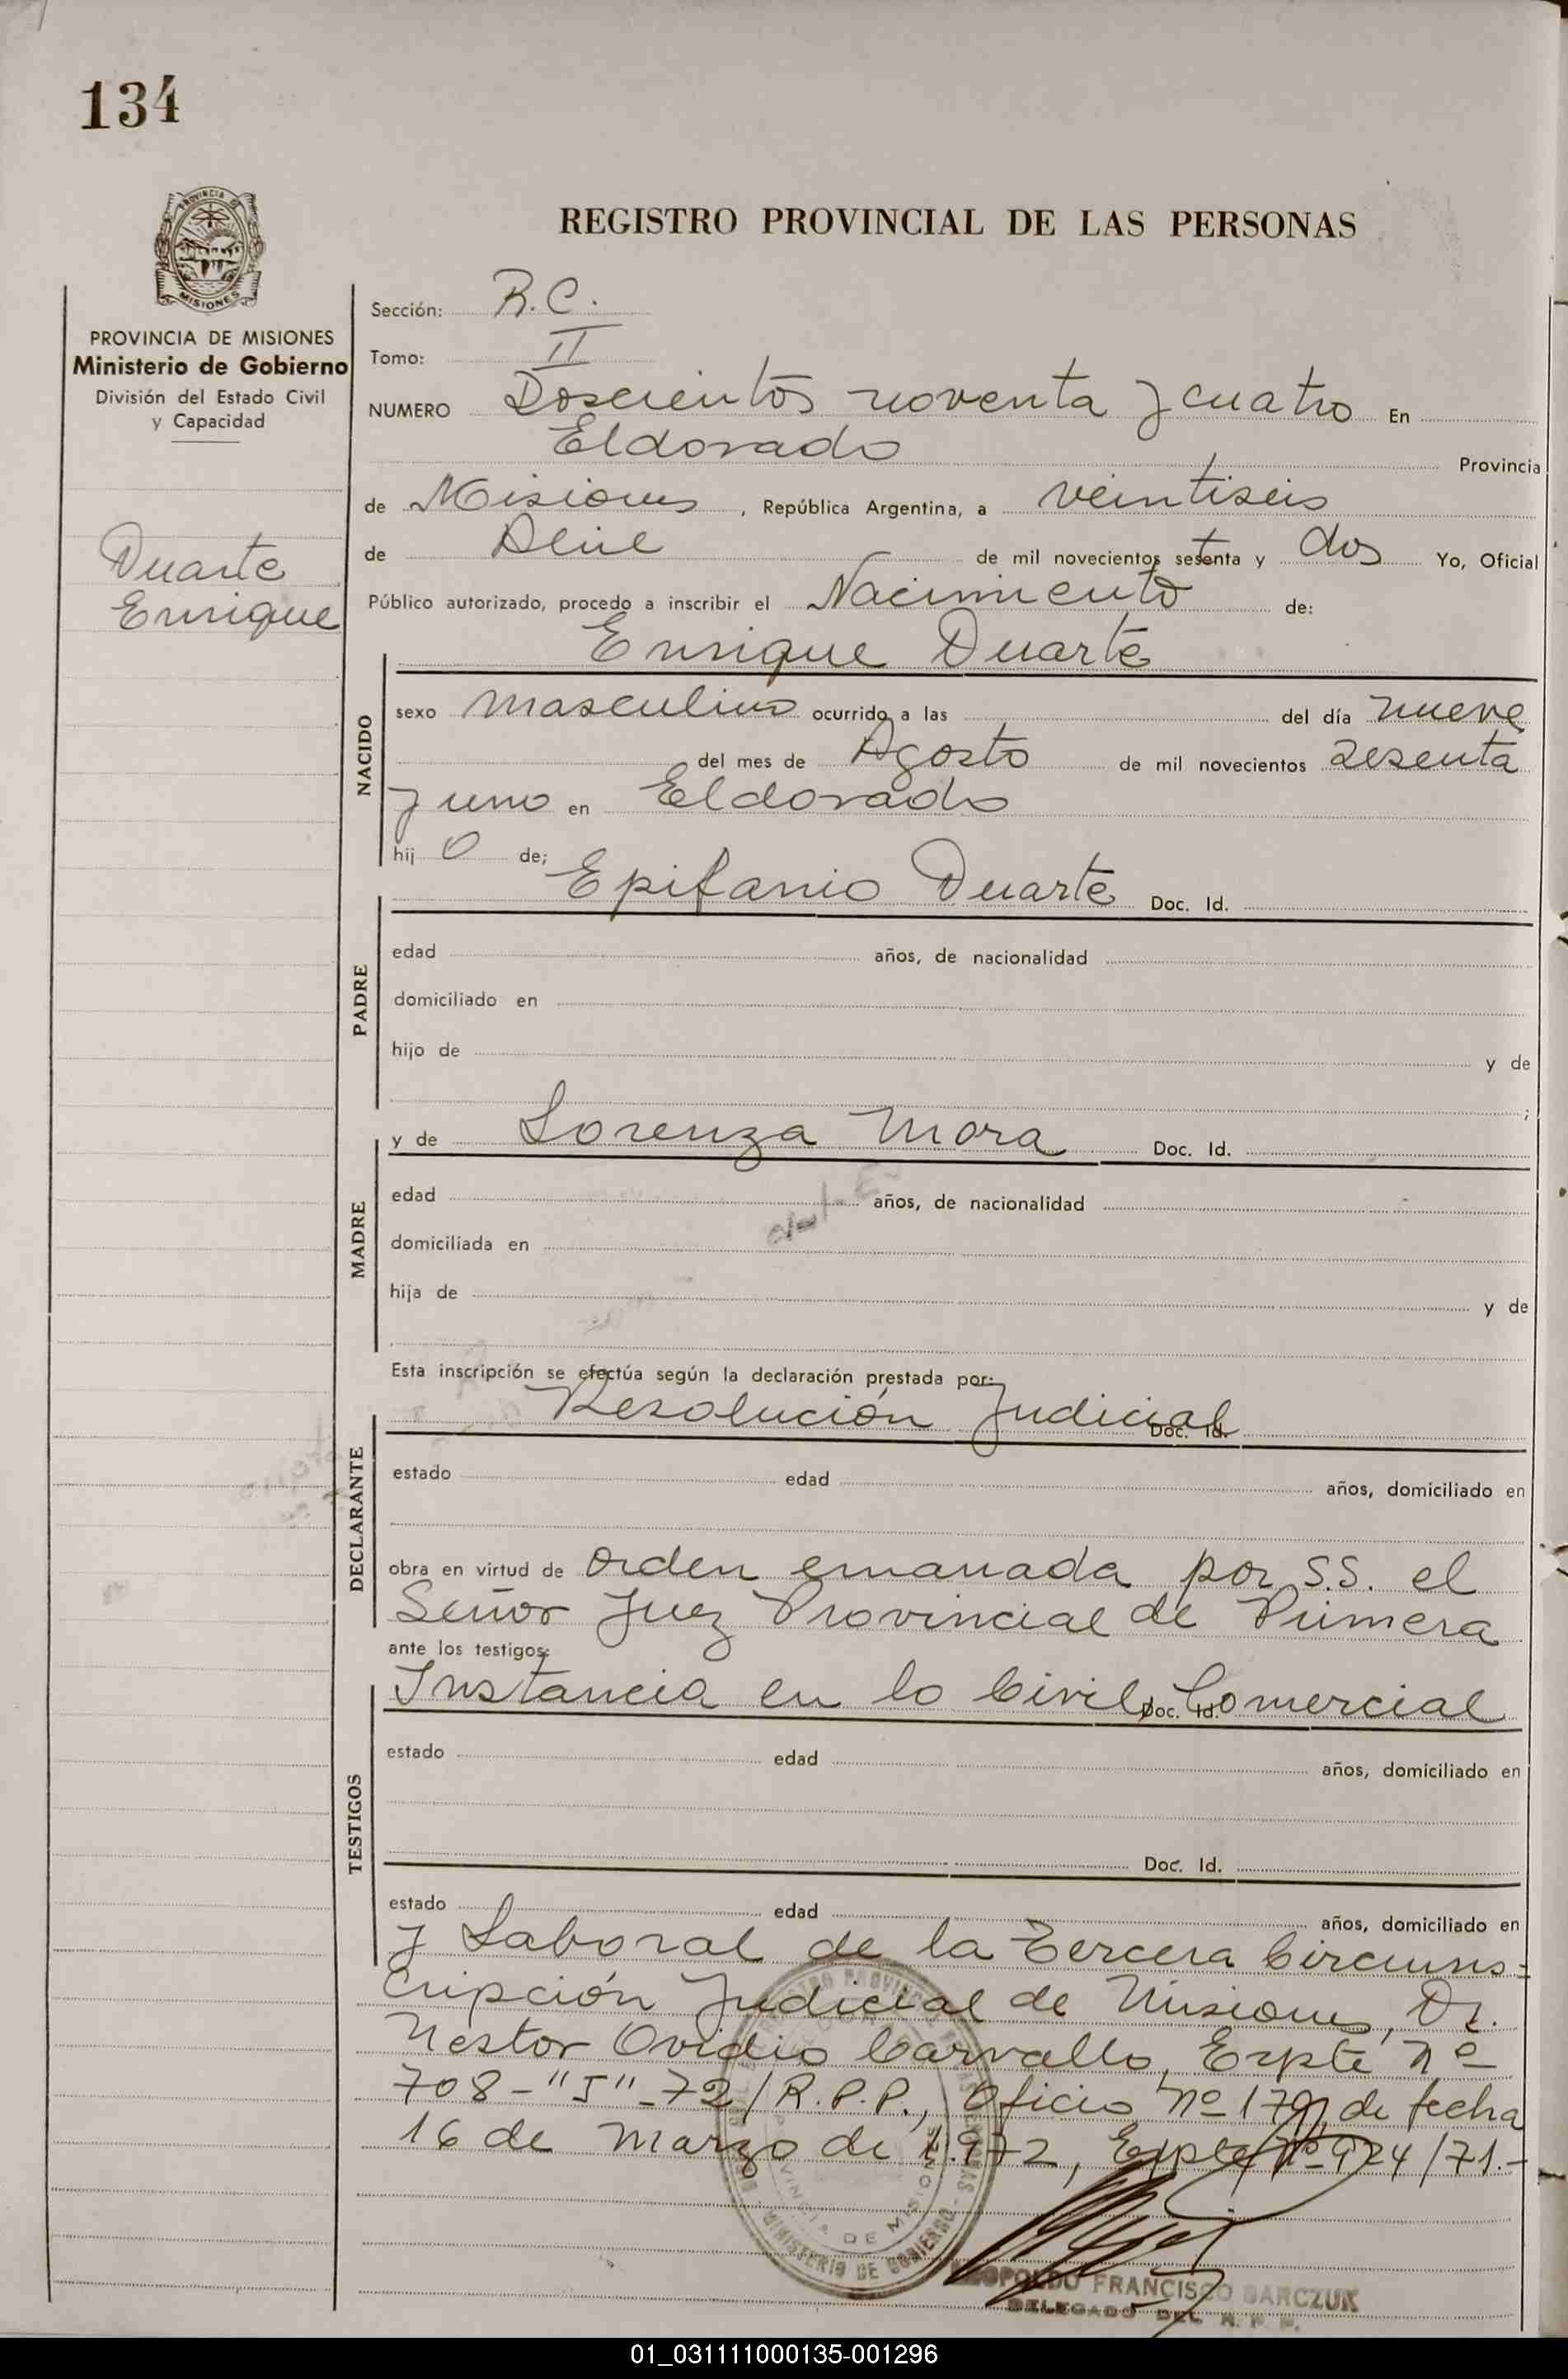 134
PROVINCIA DE
MISIONES
PROVINCIA DE MISIONES
Ministerio de Gobierno
División del Estado Civil
y Capacidad
Duarte
Enrique
REGISTRO PROVINCIAL DE LAS PERSONAS
Sección: R.C.
Tomo: II
NUMERO Doscientos noventa y cuatro En
Eldorado Provincia
de Misiones, República Argentina, a veintiseis
de Abril de mil novecientos setenta y dos Yo, Oficial
Público autorizado, procedo a inscribir el Nacimiento de:
Enrique Duarte
NACIDO
sexo masculino ocurrido a las del día nueve
del mes de Agosto de mil novecientos sesenta
y uno en Eldorado
hij o de;
Epifanio Duarte Doc. Id.
PADRE
edad años, de nacionalidad
domiciliado en
hijo de y de
;
y de Lorenza Mora Doc. Id.
MADRE
edad años, de nacionalidad
domiciliada en
hija de y de
Esta inscripción se efectúa según la declaración prestada por:
Resolución Judicial Doc. Id.
DECLARANTE
estado edad años, domiciliado en
obra en virtud de orden emanada por S.S. el
Señor Juez Provincial de Primera
ante los testigos:
Instancia en lo Civil, Comercial Doc. Id.
TESTIGOS
estado edad años, domiciliado en
Doc. Id.
estado edad años, domiciliado en
y Laboral de la Tercera Circuns=
cripción Judicial de Misiones, Dr.
Nestor Ovidio Carvallo, Expte nº
708-"J"-72/R.P.P., Oficio nº 179, de fecha
16 de Marzo de 1.972, Expte nº 924/71.-
MINISTERIO DE GOBIERNO
PROVINCIA DE MISIONES
LEOPOLDO FRANCISCO BARCZUK
DELEGADO DEL R. P. P.
01_031111000135-001296